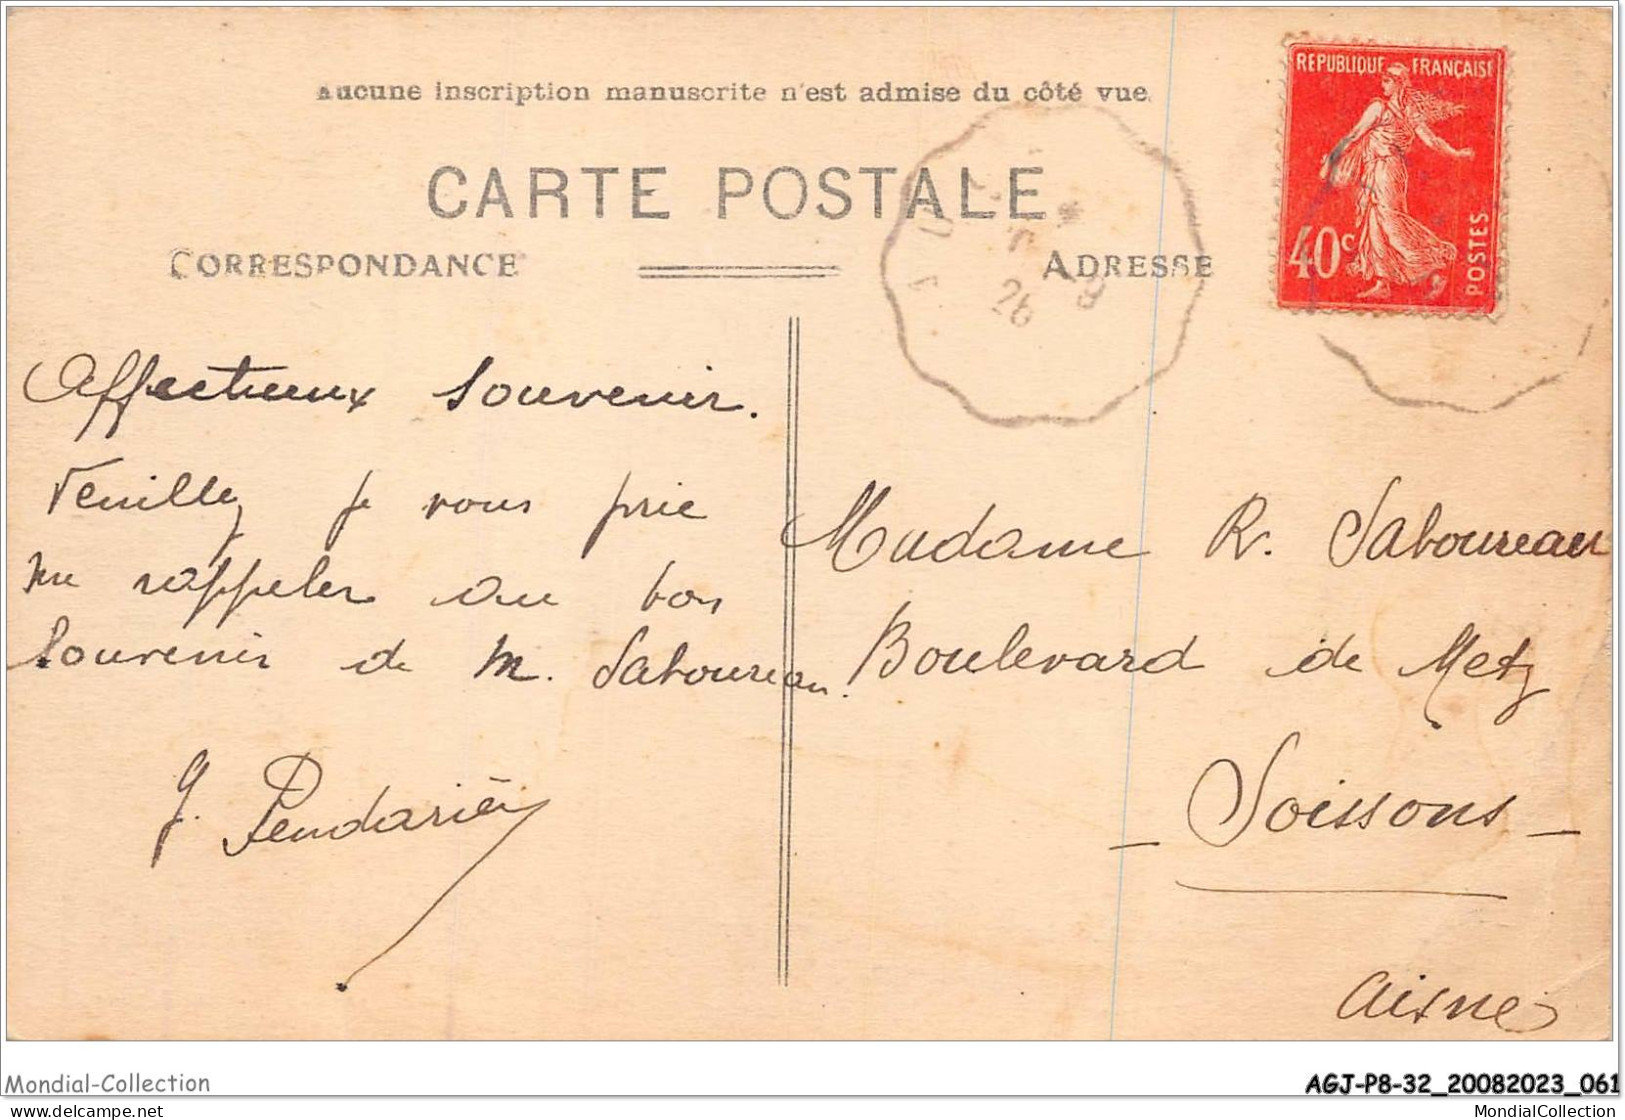 Aucune inscription manuscrite n'est admise du côté vue.
CARTE POSTALE
CORRESPONDANCE
ADRESSE
REPUBLIQUE FRANÇAISE
40c
POSTES
26
Affectueux souvenir.
Veuillez je vous prie
me rappeler au bon
souvenir de M. Saboureau.
J. Pendariès
Madame R. Saboureau
Boulevard de Metz
- Soissons -
Aisne
Mondial-Collection
AGJ-P8-32_20082023_061
www.delcampe.net
MondialCollection